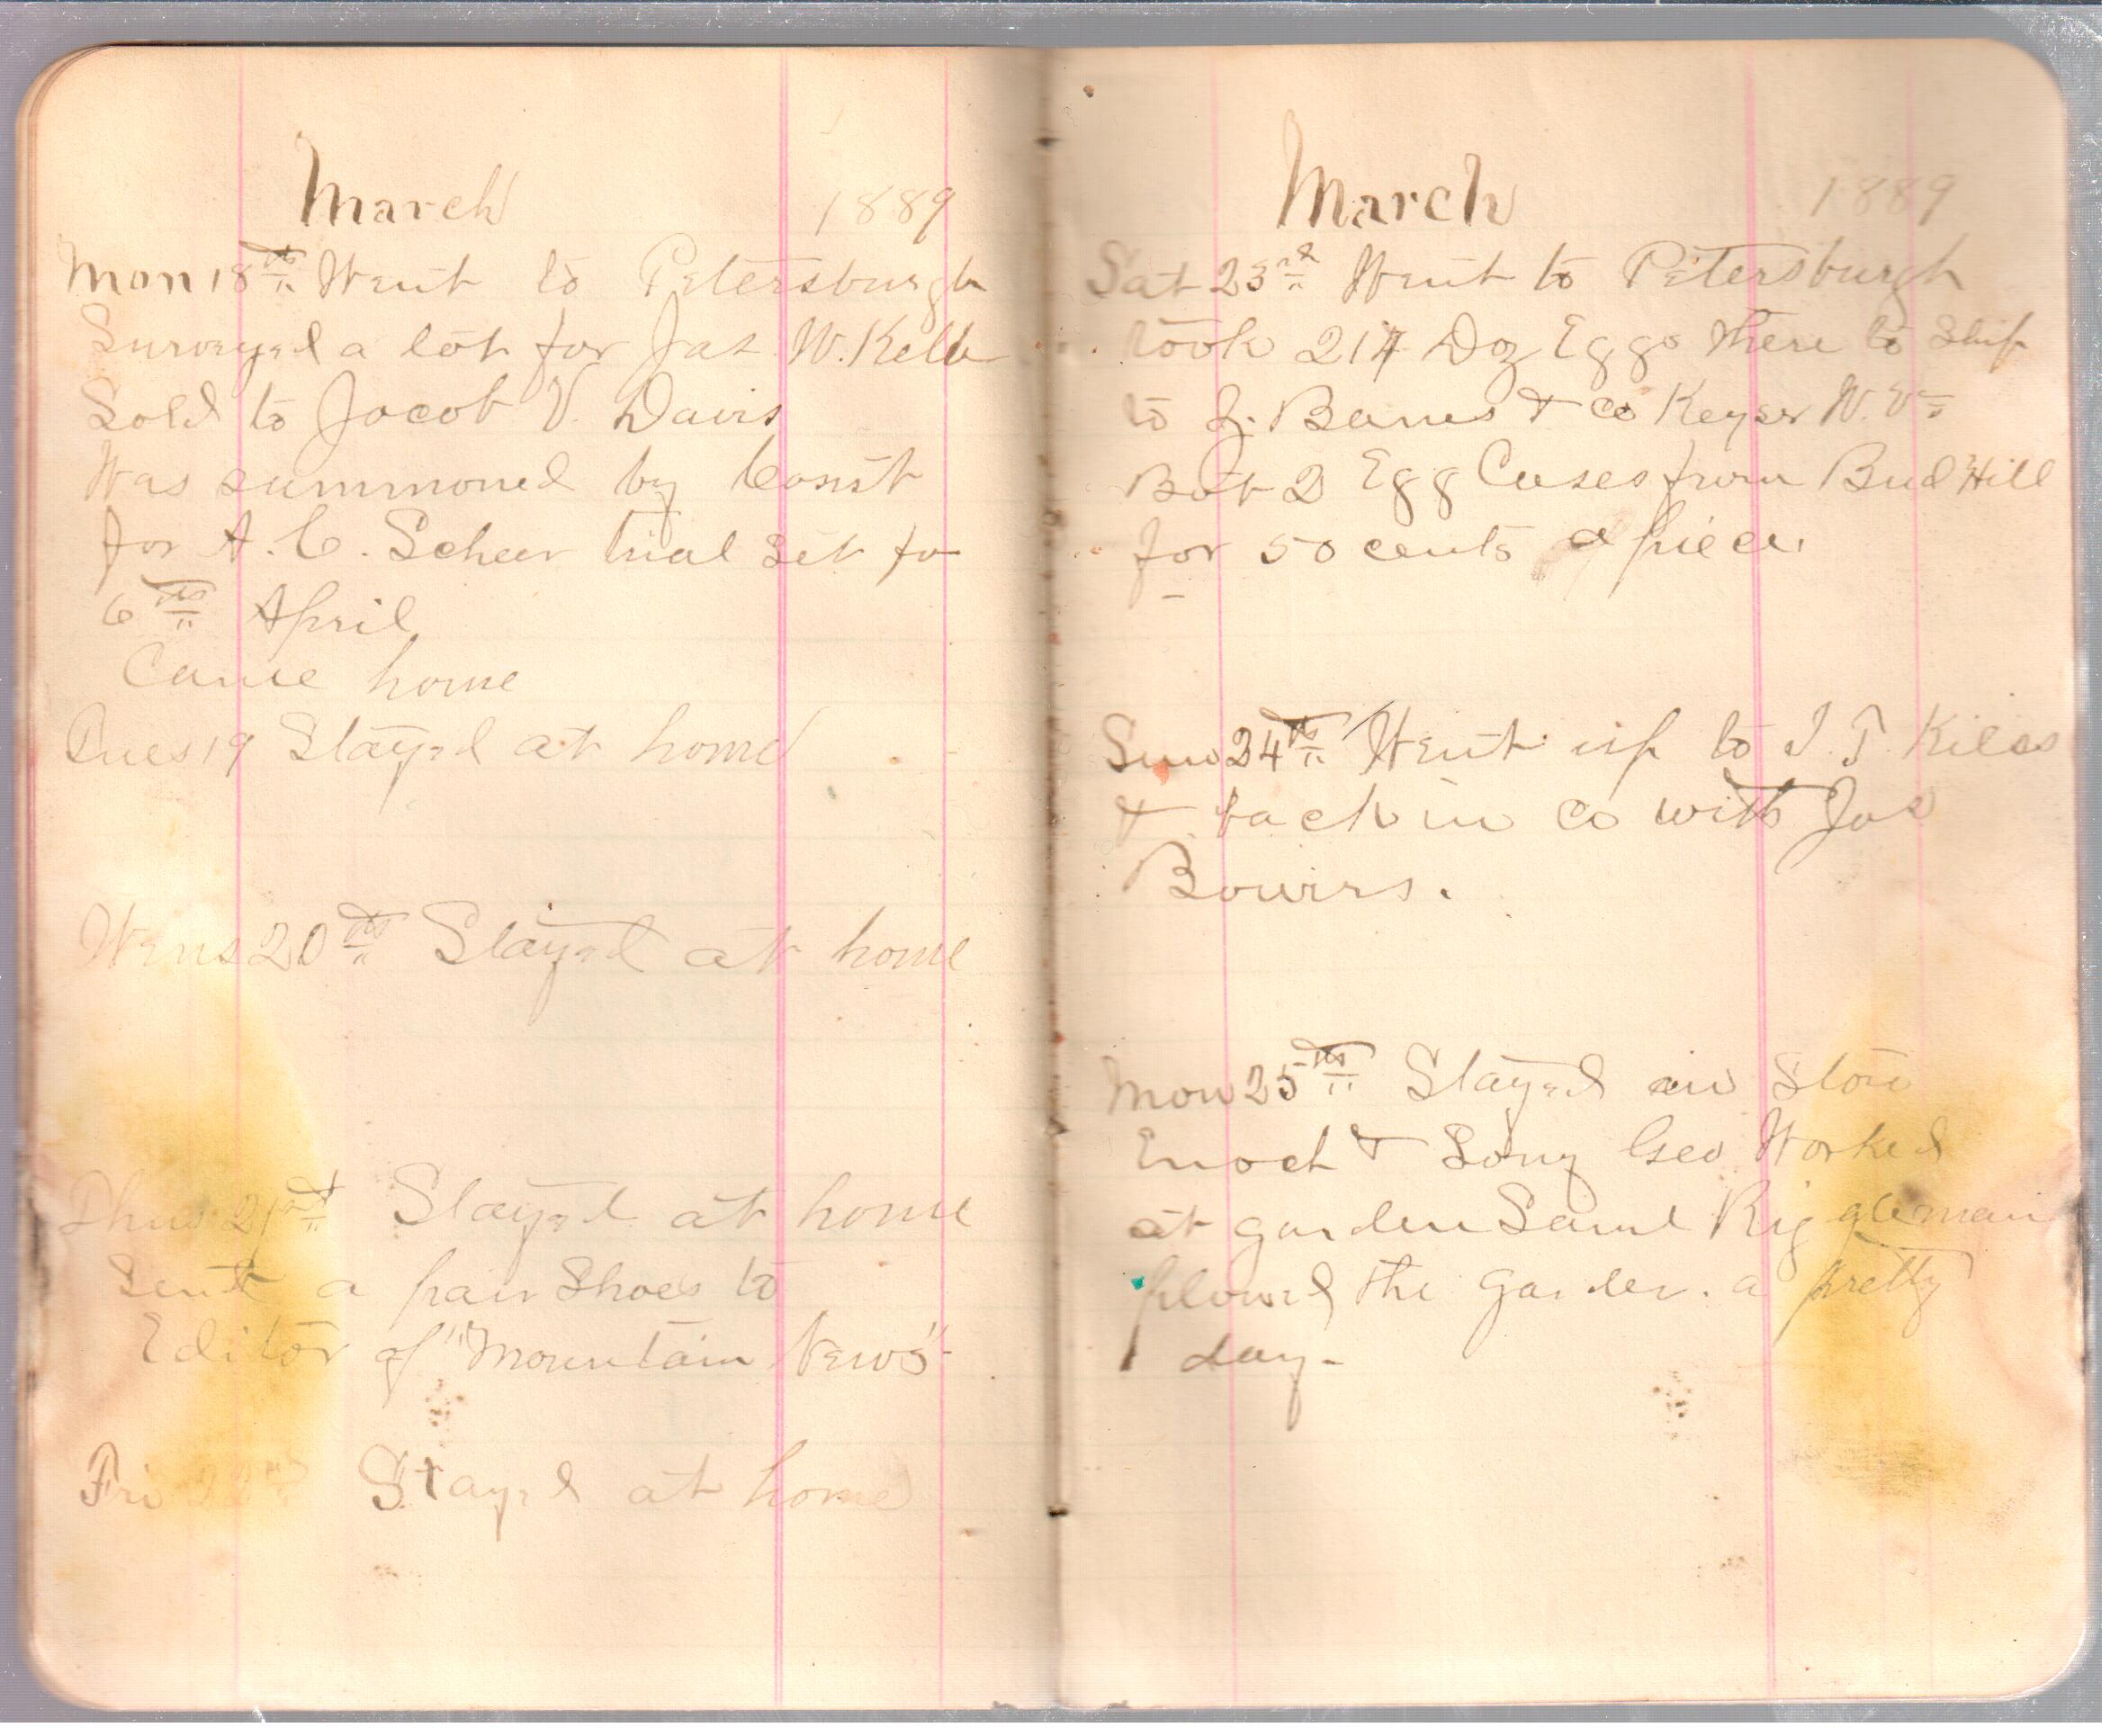 March 1889
Mon 18th Went to Petersburgh
Surveyed a lot for Jas. W. Kelle
Sold to Jacob V. Davis
Was summoned by Const
for A. C. Scheer trial set for
6th April
Came home
Tues 19 Stayed at home
Wens 20th Stayed at home
Thurs 21st Stayed at home
Sent a pair Shoes to
Editor of "Mountain News"
Fri 22nd Stayed at home
March 1889
Sat 23rd Went to Petersburgh
took 214 Doz Eggs there to Ship
to Banes & Co Keyser W. Va
Bot 2 Egg Cases from Bud Hill
for 50 cents a piece.
Sun 24th Went up to J. T. Kiles
& back in co with Jas
Bowers.
Mon 25th Stayed in Store
Enoch & Long Geo Worked
at garden Saml Riggleman
plowed the Garden. a pretty
day-